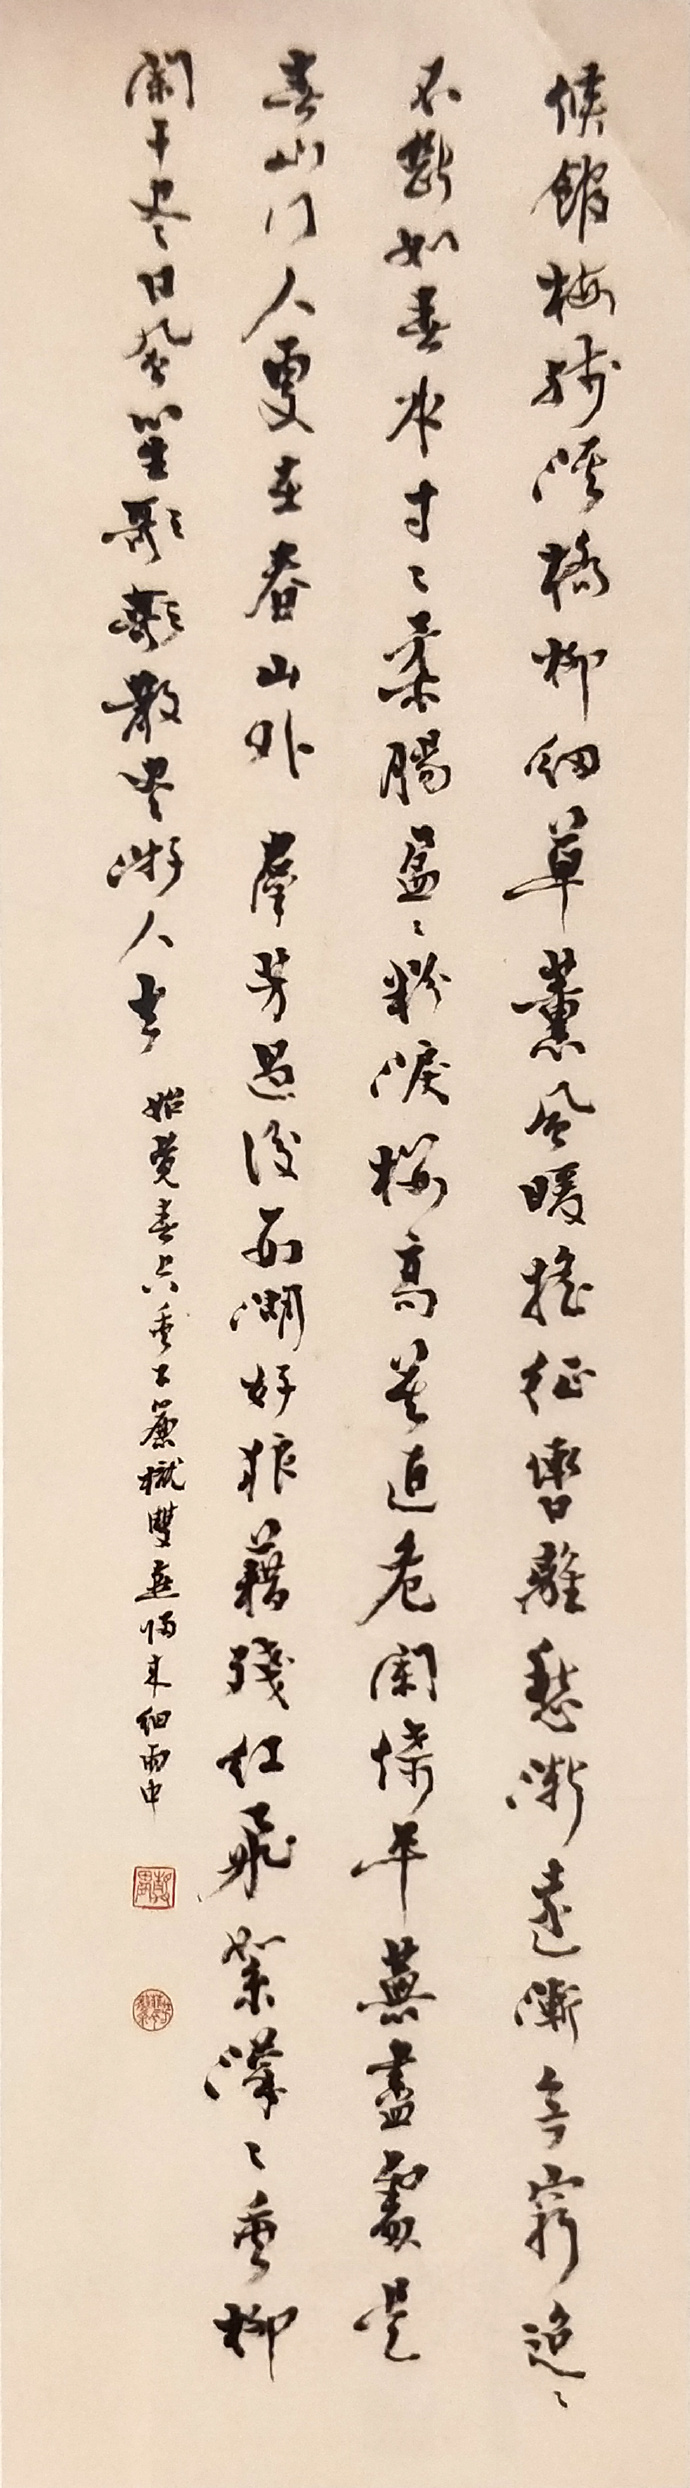 候館梅殘溪橋柳細草薰風暖搖征轡離愁漸遠漸無窮迢〻
不斷如春水寸〻柔腸盈〻粉淚樓高莫近危闌倚平蕪盡處是
春山行人更在春山外 羣芳過後西湖好狼藉殘紅飛絮濛〻垂柳
闌干尽日風笙歌歌散尽游人去 始覺春空垂下簾櫳雙燕歸來細雨中